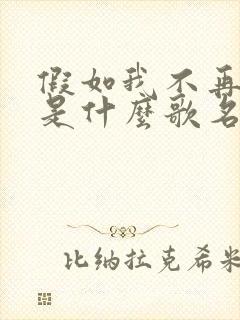 假如我不再
是什麼歌名
比纳拉克希米